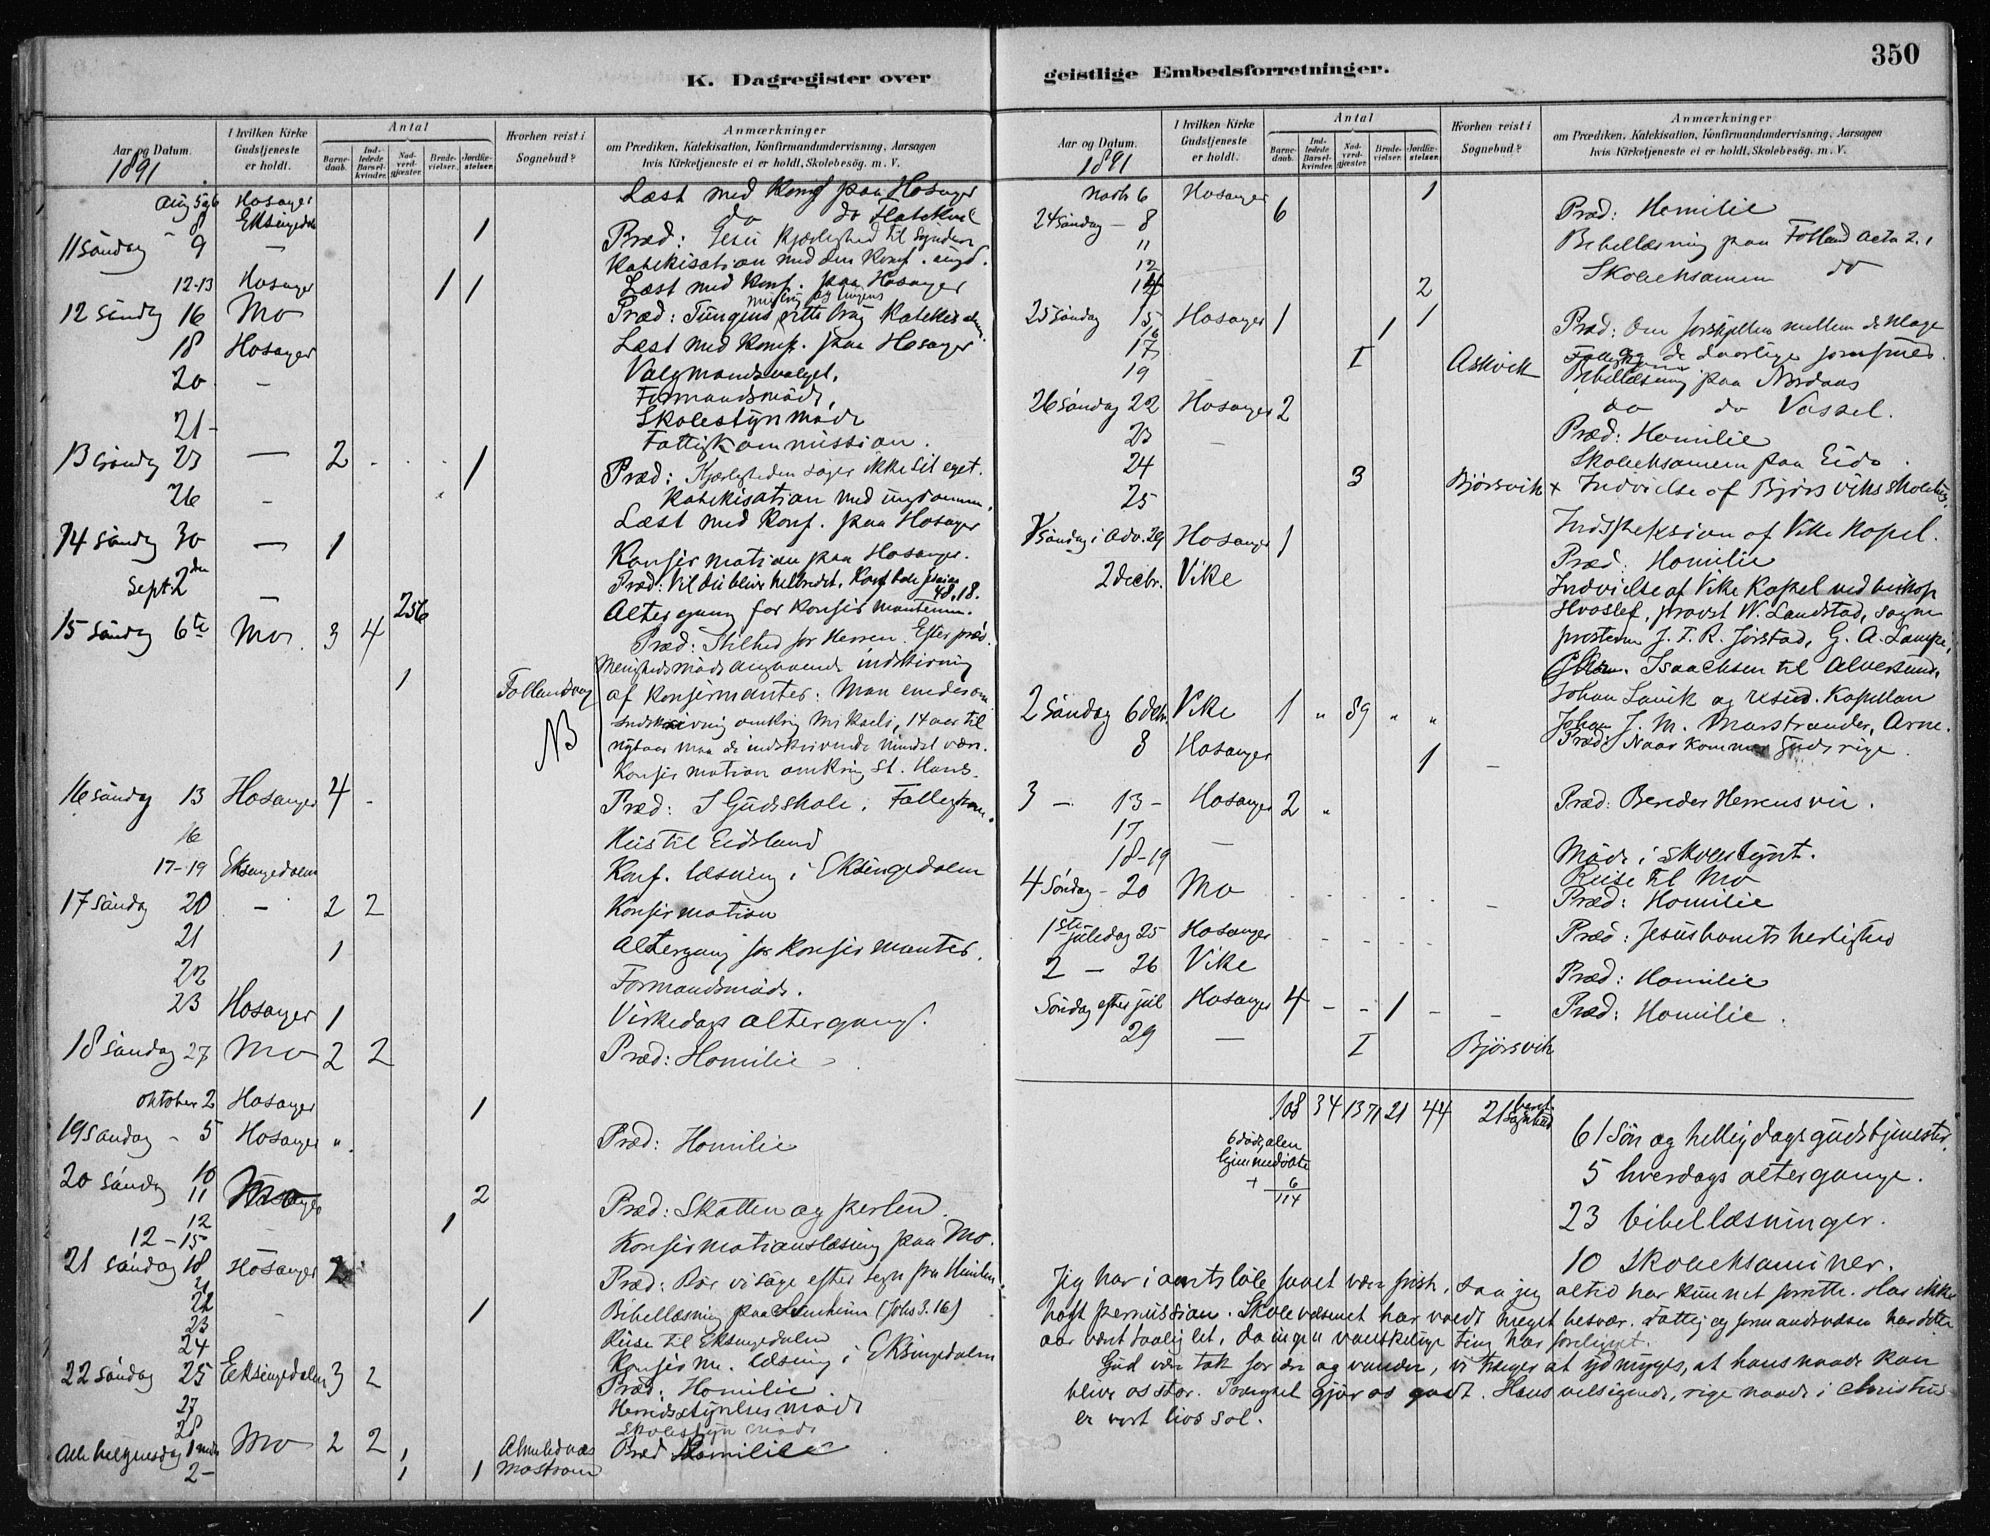 350
K. Dagregister over
geistlige Embedsforretninger.
Aar og Datum.
I hvilken Kirke Gudstjeneste er holdt.
Antal
Barnedaab.
Indledede Barselkvinder.
Nadverdgjæster.
Brudevielser.
Jordfæstelser.
Hvorhen reist i Sognebud?
Anmærkninger
om Prædiken, Katekisation, Konfirmandundervisning, Aarsagen
hvis Kirketjeneste ei er holdt, Skolebesøg. m. V.
1891
Aug 5 og 6 Hosanger Læst med Konf paa Hosanger
8 Eksingedalen do do
11 søndag 9 — 1 Præd: Jesu kjærlighed til syndere
Katekisation med den konf. ungd.
12-13 Hosanger 1 1 Læst med Konf. paa Hosanger
12 søndag 16 Mo Præd: Tungens rette brug Katekisation
18 Hosanger Læst med Konf. paa Hosanger
20 - Valgmandsvalget.
Formandsmøde,
21 - Skolestyrmøde
Fattigkommission.
13 søndag 23 — 2 1 Præd: Kjærligheden søger ikke sit eget.
Katekisation med ungdommen.
26 - Læst med Konf. paa Hosanger
14 søndag 30 — 1 Konfirmation paa Hosanger.
Præd: Vil du blive helbredet. Konf tale Esaias 48,18.
Sept. 2den — 256 Altergang for Konfirmanterne.
15 søndag 6te Mo. 3 4 Præd: Stilhed for Herren. Efter præd.
Menighedsmøde angaaende indskrivning
1 Follandsvaag af Konfirmanter. Man enedes om
NB indskrivning omkring Mikaeli, 14 aar til
nytaar maa de indskrivende mindst være.
Konfirmation omkring St. Hans.
16 søndag 13 Hosanger 4 - Præd: I Guds skole. Fattigkom.
16 Reis til Eidsland
17-19 Eksingedalen Konf. læsning i Eksingedalen
17 søndag 20 - 2 2 Konfirmation
21 1 Altergang for Konfirmanter.
22 Formandsmøde.
23 Hosanger 1 Virkedags altergang.
18 søndag 27 Mo 2 2 Præd: Homilie
Oktober 2 Hosanger 1
19 søndag - 5 Hosanger " Præd: Homilie
20 søndag 10
11 2 Præd: Skatten og perlen.
12 1
12-15 Konfirmationslæsning paa Mo.
21 søndag 18 Hosanger 2 Præd: Bør vi søge efter tegn fra Himlen.
21
22 - 1 Bibellæsning paa (Johs 3.16)
23 Reise til Eksingedalen
24 Konfirm. læsning i Eksingedalen
22 søndag 25 Eksingedalen 3 2 Præd: Homilie.
27 Herredsstyrelses møde
28 Skolestyr møde
Alle helgensdag 1 novbr Mo 2 2 1 Præd Homilie
2 - 1 1 Mostraum
1891
Novbr 6 Hosanger 1
24 søndag — 8 6 Præd: Homilie
11 Bibellæsning paa Folland Acta 2.1
12 Skoleeksamen do
14 2
25 søndag 15 Hosanger 1 1 Præd: Om forskjellen mellem de kloge
16 1 og de daarlige jomfruer.
17 I Askvik
19 Bibellæsning paa Nordaas
do do Vassel.
26 søndag 22 Hosanger 2 Præd: Homilie
23 — Skoleeksamen paa Eide.
24 3 Bjørsvik + Indvielse af Bjørsviks skolehus
25 Indspektion af Vike Kapel.
1 søndag i Adv. 29 Hosanger 1 Præd: Homilie
2 decbr. Vike Indvielse af Vike Kapel ved biskop
Hvoslef, provst W. Landstad, sogne
presterne J. F. R. Jørstad, G. A. Lampe,
Isaachsen til Alversund,
Johan Lavik og resid. Kapellan
Johan J. M. Marstrander, Arne.
2 Søndag 6 decbr. Vike 1 " 89 " " Præd: Naar kommer Guds rige.
8 Hosanger 1 -
3 — 13 - Hosanger 2 " Præd: Bereder Herrens vei.
17
18-19 — Møde i skolestyret.
Reise til Mo
4 Søndag - 20 Mo Præd: Homilie
1ste juledag 25 Hosanger Præd: Jesusbarnets herlighed
2 — 26 Vike Præd: Homilie
Søndag efter jul Hosanger 4 - - 1 - - Præd: Homilie.
29 — I Bjørsvik
108 34 1371 21 44 21 sognebud
6 dødfødte
+ 6
114
61 Søn og helligdagsgudstjenester
5 hverdags altergange.
23 bibellæsninger.
10 Skoleeksaminer.
Jeg har i aarets løb faaet være frisk, saa jeg altid har kunnet forrette. Har ikke
havt permission. Skolevæsenet har voldt meget besvær. Fattig og formandsvæsen har dette
aar været taalig let, da ingen vanskelige ting har foreligget.
Gud være tak for, vi trænger at ydmyges, at hans naade kan
blive os stor. Trængsel gjør os godt. Hans velsignede, rige naade i Christus
er vort livs sol.